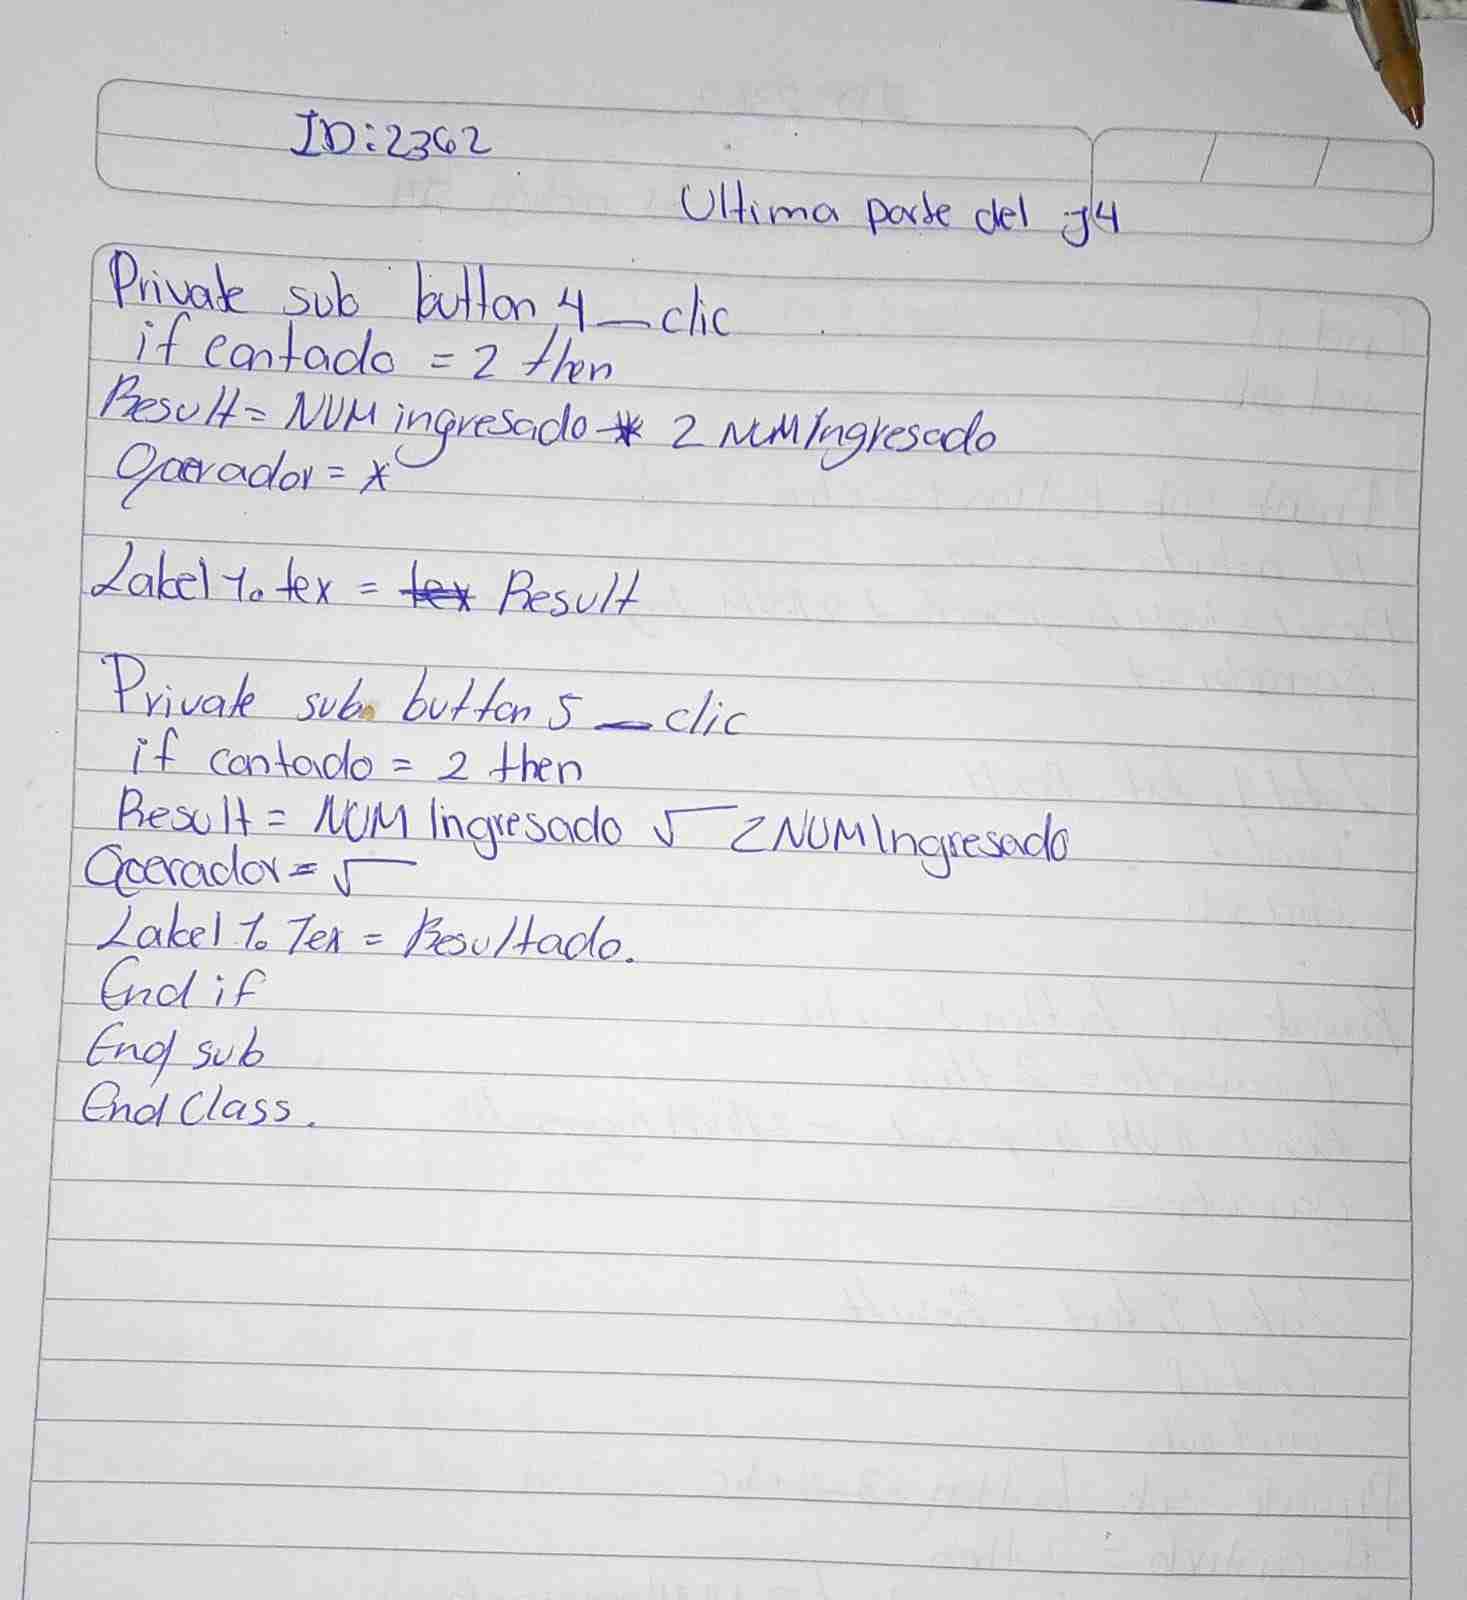 ID:2362
Ultima parte del J4
Private sub button 4_clic
if contado = 2 then
Result = NUM ingresado * 2 NUM Ingresado
Operador = *
Label 1. tex = Result
Private sub button 5_clic
if contado = 2 then
Result = NUM Ingresado √ 2 NUM Ingresado
Operador = √
Label 1. Tex = Resultado.
End if
End sub
End Class.